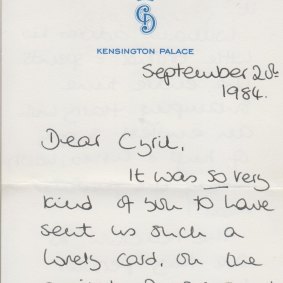 KENSINGTON PALACE
September 20th
1984.
Dear Cyril,
It was so very
kind of you to have
sent us such a
lovely card, on the